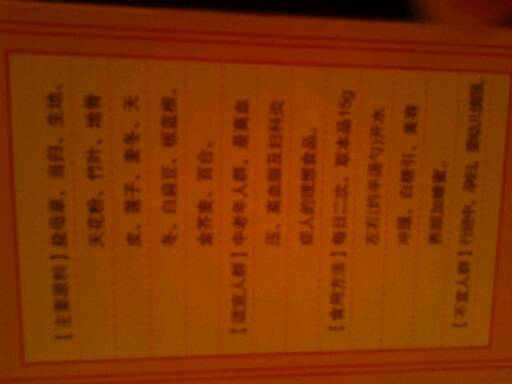 【主要原料】益母草、当归、生地、
天花粉、竹叶、地骨
皮、莲子、麦冬、天
冬、白扁豆、板蓝根、
金荞麦、百合。
【适宜人群】中老年人群，是高血
压、高血脂及妇科炎
症人的理想食品。
【食用方法】每日二次，取本品15g
左右(约半汤勺)开水
冲服，白糖引、美容
养颜加蜂蜜。
【不宜人群】行经中、孕妇、婴幼儿慎服。